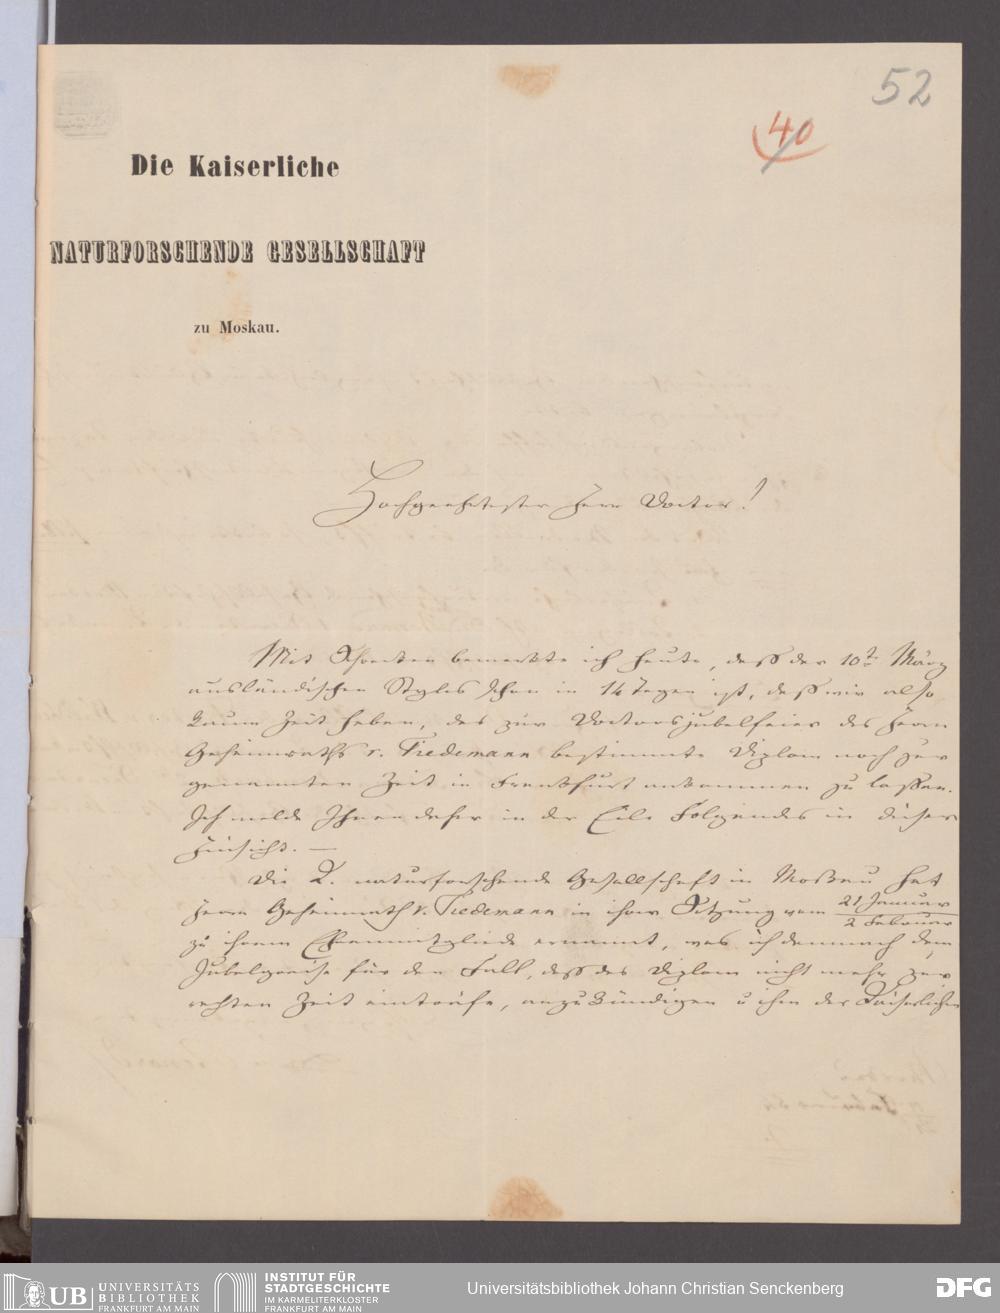 52
40
Die Kaiserliche
NATURFORSCHENDE GESELLSCHAFT
zu Moskau.
Hochgeehrtester Herr Doctor!
Mit Schrecken bemerkte ich heute, daß der 10te März
ausländischen Styles schon in 14 Tagen ist, daß wir also
kaum Zeit haben, das zur Doctorjubelfeier des Herrn
Geheimraths v. Tiedemann bestimmte Diplom noch zur
genannten Zeit in Frankfurt ankommen zu lassen.
Ich melde Ihnen daher in der Eile Folgendes in dieser
Hinsicht. —
Die K. naturforschende Gesellschaft in Moskau hat
Herrn Geheimrath v. Tiedemann in ihrer Sitzung vom 21 Januar / 2 Februar
zu ihrem Ehrenmitgliede ernannt, was ich demnach dem
Jubelgreise für den Fall, daß das Diplom nicht mehr zur
rechten Zeit einträfe, anzukündigen u ihm der Kaiserlichen
UB UNIVERSITÄTS
BIBLIOTHEK
FRANKFURT AM MAIN
INSTITUT FÜR
STADTGESCHICHTE
IM KARMELITERKLOSTER
FRANKFURT AM MAIN
Universitätsbibliothek Johann Christian Senckenberg
DFG